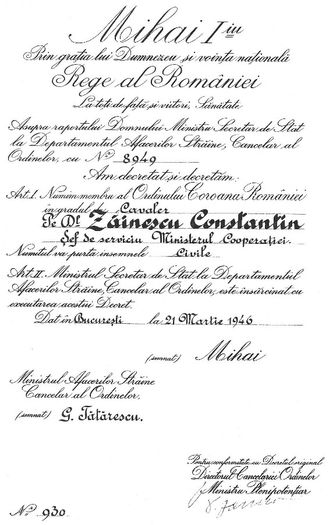 Mihai I iu
Prin grația lui Dumnezeu și voința națională
Rege al României
La toți de față și viitori, Sănătate
Asupra raportului Domnului Ministru Secretar de Stat
la Departamentul Afacerilor Străine, Cancelar al
Ordinelor, cu No 8949
Am decretat și decretăm:
Art. I. Numim membru al Ordinului Coroana României
în gradul de Cavaler
Pe Dl. Zăinescu Constantin
Șef de serviciu Ministerul Cooperației.
Numitul va purta insemnele Civile
Art. II. Ministrul Secretar de Stat la Departamentul
Afacerilor Străine, Cancelar al Ordinelor, este însărcinat cu
executarea acestui Decret.
Dat în București la 21 Martie 1946
(semnat) Mihai
Ministrul Afacerilor Străine
Cancelar al Ordinelor.
(semnat) G. Tătărescu.
Pentru conformitate cu Decretul original
Directorul Cancelariei Ordinelor
Ministru Plenipotențiar
No 930